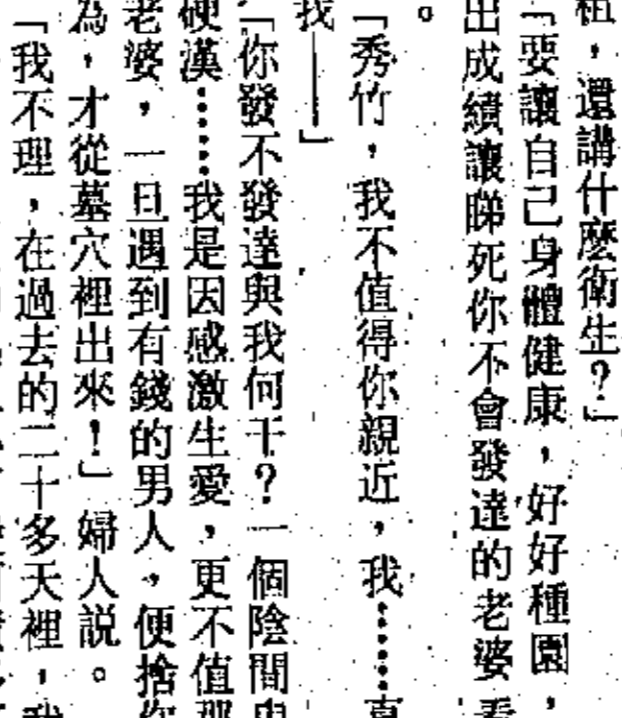 租，還講什麼衛生？」
「要讓自己身體健康，好好種園，
出成績讓睇死你不會發達的老婆看
。
「秀竹，我不值得你親近，我……真
我——」
「你發不發達與我何干？一個陰間
硬漢……我是因感激生愛，更不值那
老婆，一旦遇到有錢的男人，便捨你
為，才從墓穴裡出來！」婦人説。
「我不理，在過去的二十多天裡，我